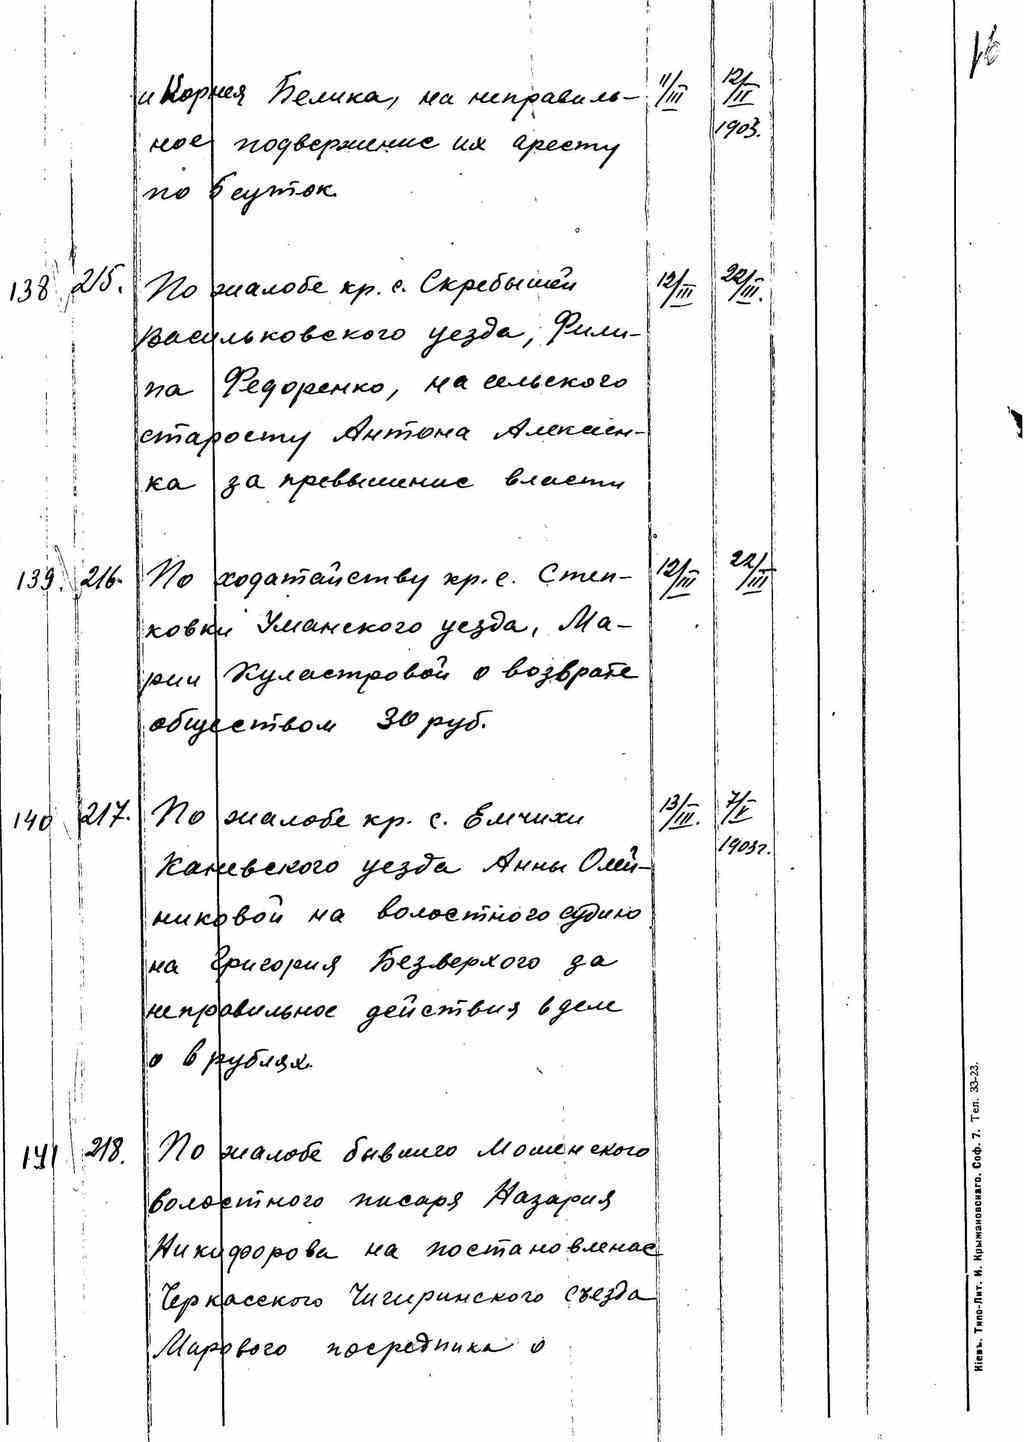 16
и Корнея Белика, на неправиль- 11/III 12/II
ное подвержение их аресту 1903.
по 5 суток.
138 215. По жалобе кр. с. Скребышей 12/III 22/III.
Васильковского уезда, Фили-
па Федоренко, на сельского
старосту Антона Алексен-
ка за превышение власти
139. 216. По ходатайству кр. с. Степ- 12/III 22/III
ковки Уманского уезда, Ма-
рии Куластровой о возврате
обществом 30 руб.
140 217. По жалобе кр. с. Емчихи 13/III. 7/V
Каневского уезда Анны Олей- 1903г.
никовой на волостного судию
на Григория Безверхого за
неправильное действия в деле
о 6 рублях.
141 218. По жалобе бывшего Мошенского
волостного писаря Назария
Никифорова на постановление
Черкасского Чигиринского съезда
Марового посредника о
Кіевъ. Типо-Лит. И. Крыжановскаго. Соф. 7. Тел. 33-23.